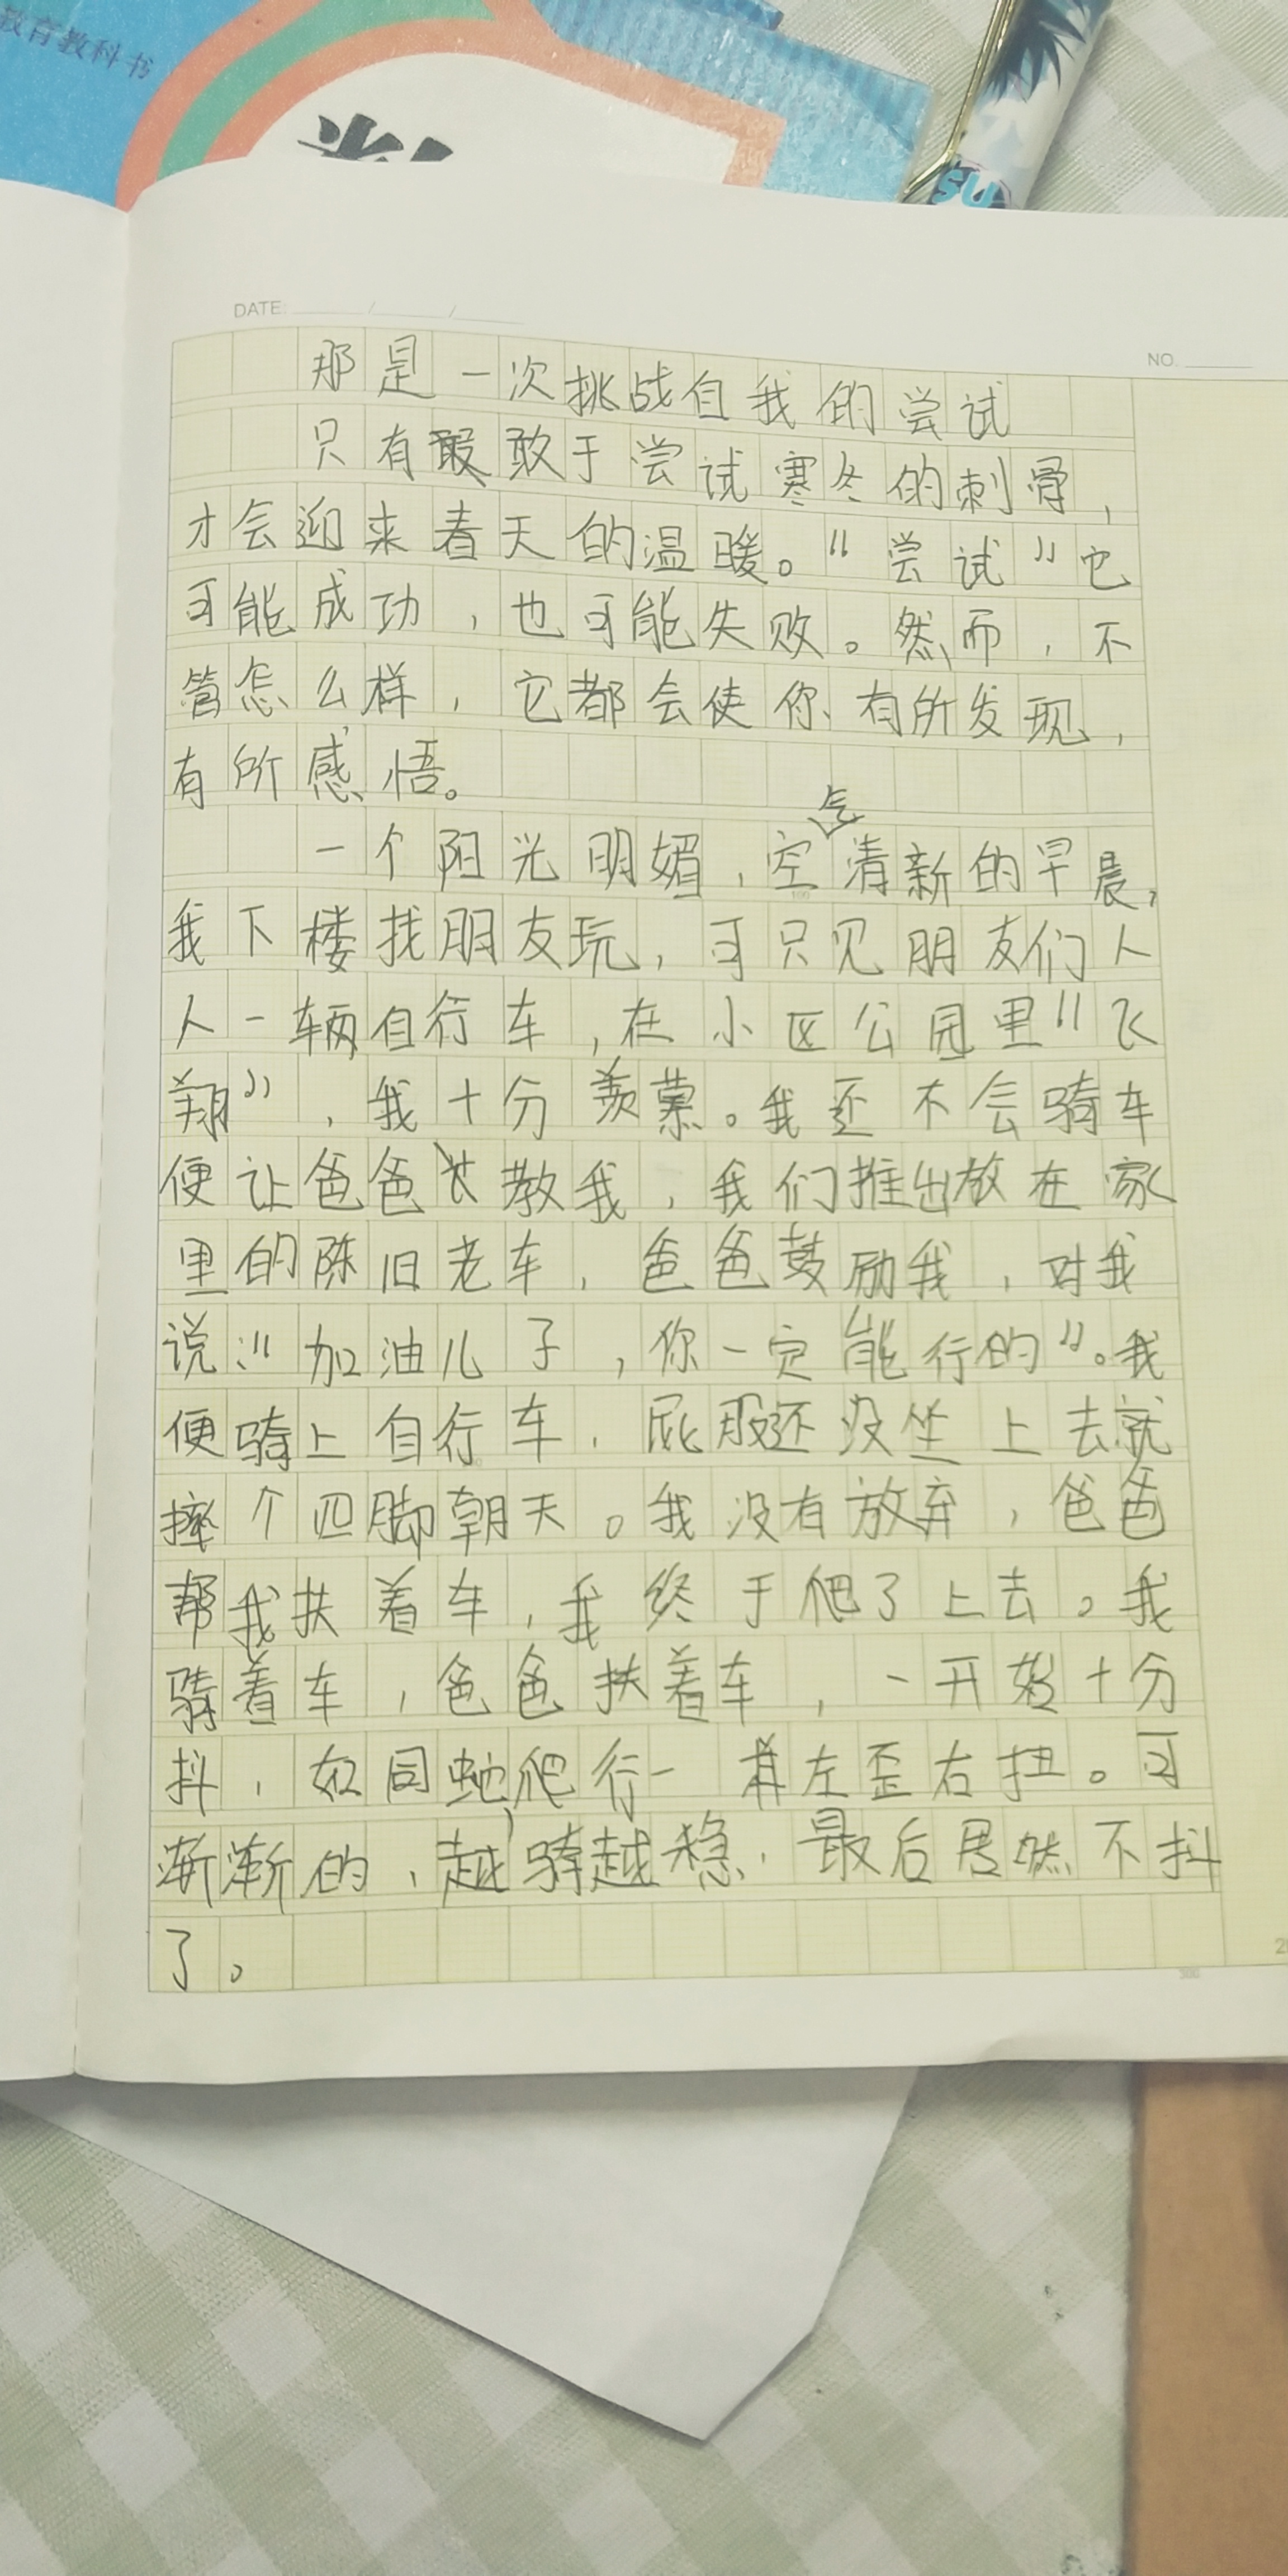 教育教科书
SU
DATE: / /
NO.
那是一次挑战自我的尝试
只有敢于尝试寒冬的刺骨，
才会迎来春天的温暖。“尝试”它
可能成功，也可能失败。然而，不
管怎么样，它都会使你有所发现，
有所感悟。
一个阳光明媚，空气清新的早晨，
我下楼找朋友玩，可只见朋友们人
人一辆自行车，在小区公园里“飞
翔”，我十分羡慕。我还不会骑车
便让爸爸教我，我们推出放在家
里的陈旧老车，爸爸鼓励我，对我
说：“加油儿子，你一定能行的”。我
便骑上自行车，屁股还没坐上去就
摔个四脚朝天。我没有放弃，爸爸
帮我扶着车，我终于爬了上去。我
骑着车，爸爸扶着车，一开始十分
抖，如同蛇爬行一样左歪右扭。可
渐渐的，越骑越稳，最后居然不抖
了。